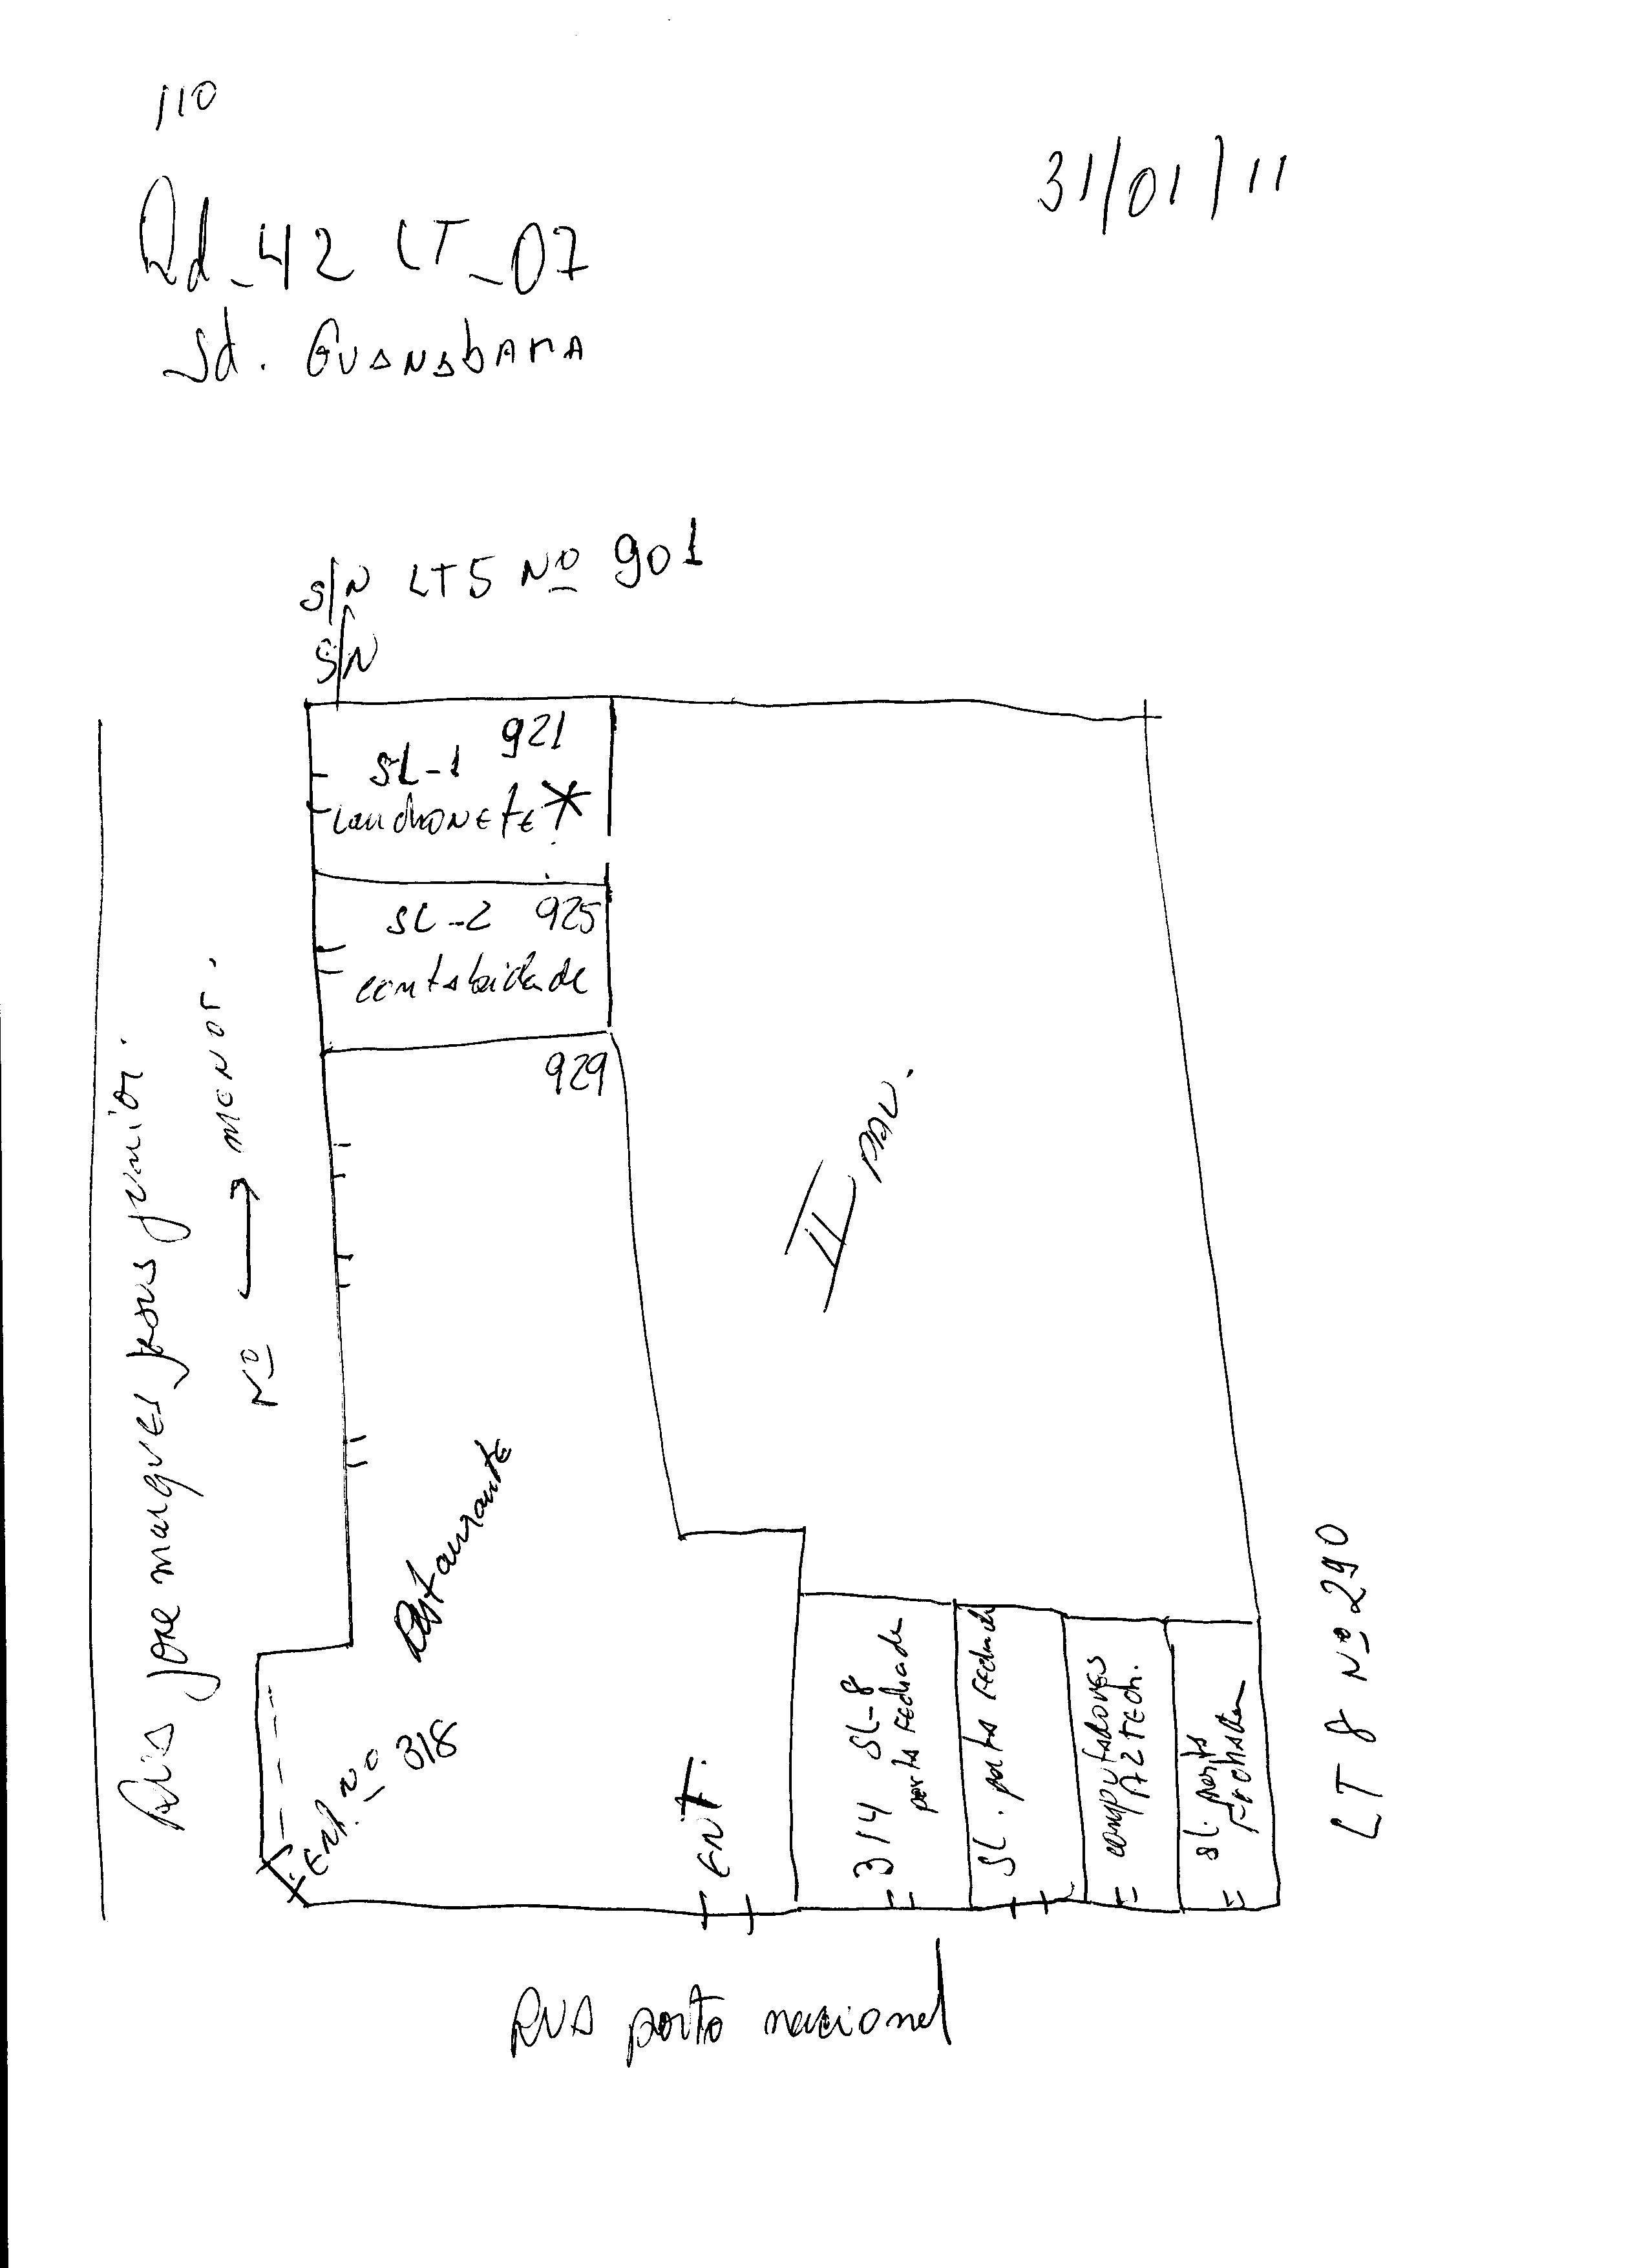 110
31/01/11
Qd_42 LT_07
Jd. GUANABARA
S/N LT5 Nº 901
S/N
921
SL-1
LanchoNETE *
SL-2 925
contabidade
929
RUA jose marques jesus junior.
Nº → MENOr.
II PAV.
Restaurante
ENT. Nº 318
ENT.
314 SL-8
porta FEchada
SL. porta FEchada
computadores
AZTECH.
SL. porta
FEchada
LT 8 Nº 290
RUA porto nacional